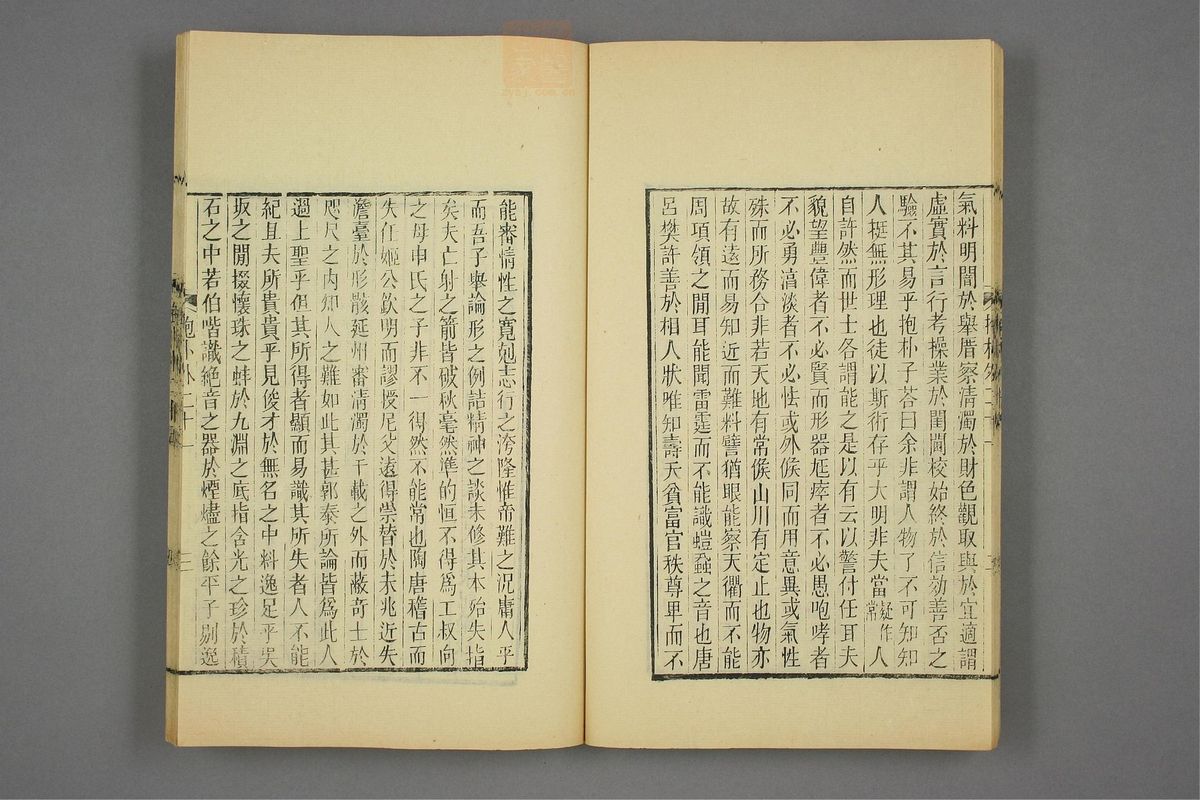 氣料明闇於舉厝察清濁於財色觀取與於宜適謂
虛實於言行考操業於閨閫校始終於信効善否之
驗不其易乎抱朴子荅曰余非謂人物了不可知知
人挺無形理也徒以斯術存乎大明非夫當疑作常人
自許然而世士各謂能之是以有云以警付任耳夫
貌望豐偉者不必賢而形器尫瘁者不必愚咆哮者
不必勇淊淡者不必怯或外候同而用意異或氣性
殊而所務合非若天地有常候山川有定止也物亦
故有遠而易知近而難料譬猶眼能察天衢而不能
周項領之閒耳能聞雷霆而不能識螘蝨之音也唐
呂樊許善於相人狀唯知壽夭貧富官秩尊卑而不
能審情性之寬剋志行之洿隆惟帝難之況庸人乎
而吾子舉論形之例詰精神之談未修其本殆失指
矣夫亡射之箭皆破秋毫然準的恒不得為工叔向
之母申氏之子非不一得然不能常也陶唐稽古而
失任姬公欽明而謬授尼父遠得崇替於未兆近失
澹臺於形骸延州審清濁於千載之外而蔽奇士於
咫尺之內知人之難如此其甚郭泰所論皆為此人
過上聖乎但其所得者顯而易識其所失者人不能
紀且夫所貴貴乎見俊才於無名之中料逸足乎吳
坂之閒掇懷珠之蚌於九淵之底指含光之珍於積
石之中若伯喈識絕音之器於煙燼之餘平子剔逸
抱朴外二十一
三